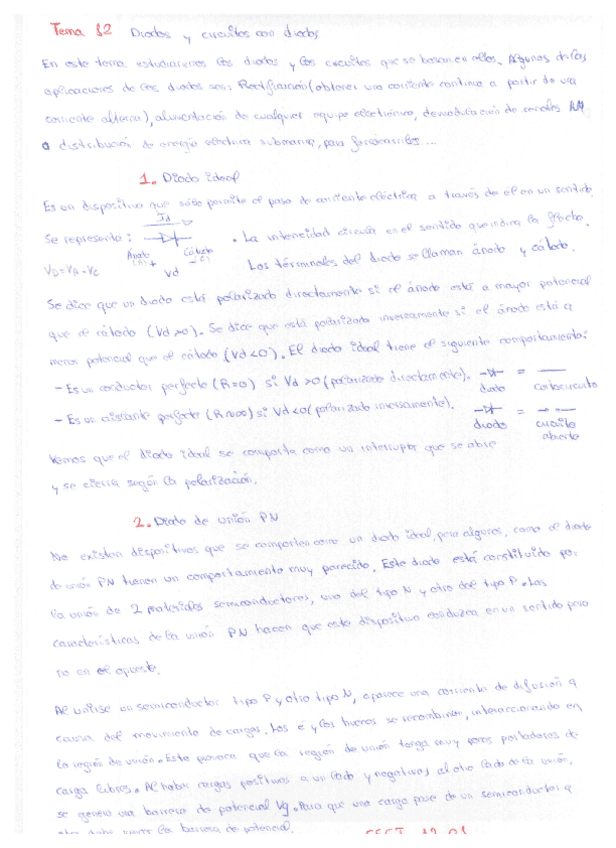 Tema 12 Diodos y circuitos con diodos
En este tema estudiaremos los diodos y los circuitos que se basan en ellos. Algunas de las
aplicaciones de los diodos son: Rectificación (obtener una corriente continua a partir de una
corriente alterna), alimentación de cualquier equipo electrónico, demodulación de señales AM
o distribución de energía eléctrica submarina, para ferrocarriles....
1. Diodo ideal
Es un dispositivo que sólo permite el paso de corriente eléctrica a través de el en un sentido.
Se representa: Id • La intensidad circula en el sentido que indica la flecha.
VD=VA-VC Ánodo (A) + Vd Cátodo - (C) Los términales del diodo se llaman ánodo y cátodo.
Se dice que un diodo está polarizado directamente si el ánodo está a mayor potencial
que el cátodo (Vd>0). Se dice que está polarizado inversamente si el ánodo está a
menor potencial que el cátodo (Vd<0). El diodo ideal tiene el siguiente comportamiento:
- Es un conductor perfecto (R=0) si Vd>0 (polarizado directamente). = 
diodo cortocircuito
- Es un aislante perfecto (R≈∞) si Vd<0 (polarizado inversamente). =
diodo circuito
abierto
Vemos que el diodo ideal se comporta como un interruptor que se abre
y se cierra según la polarización.
2. Diodo de unión PN
No existen dispositivos que se comporten como un diodo ideal, pero algunos, como el diodo
de unión PN tienen un comportamiento muy parecido. Este diodo está constituido por
la unión de 2 materiales semiconductores, uno del tipo N y otro del tipo P. Las
características de la unión PN hacen que este dispositivo conduzca en un sentido pero
no en el opuesto.
Al unirse un semiconductor tipo P y otro tipo N, aparece una corriente de difusión a
causa del movimiento de cargas. Los e⁻ y los huecos se recombinan, interaccionando en
la región de unión. Esto provoca que la región de unión tenga muy pocos portadores de
carga libres. Al haber cargas positivas a un lado y negativas al otro lado de la unión,
se genera una barrera de potencial Vg. Para que una carga pase de un semiconductor a
otro debe superar la barrera de potencial.